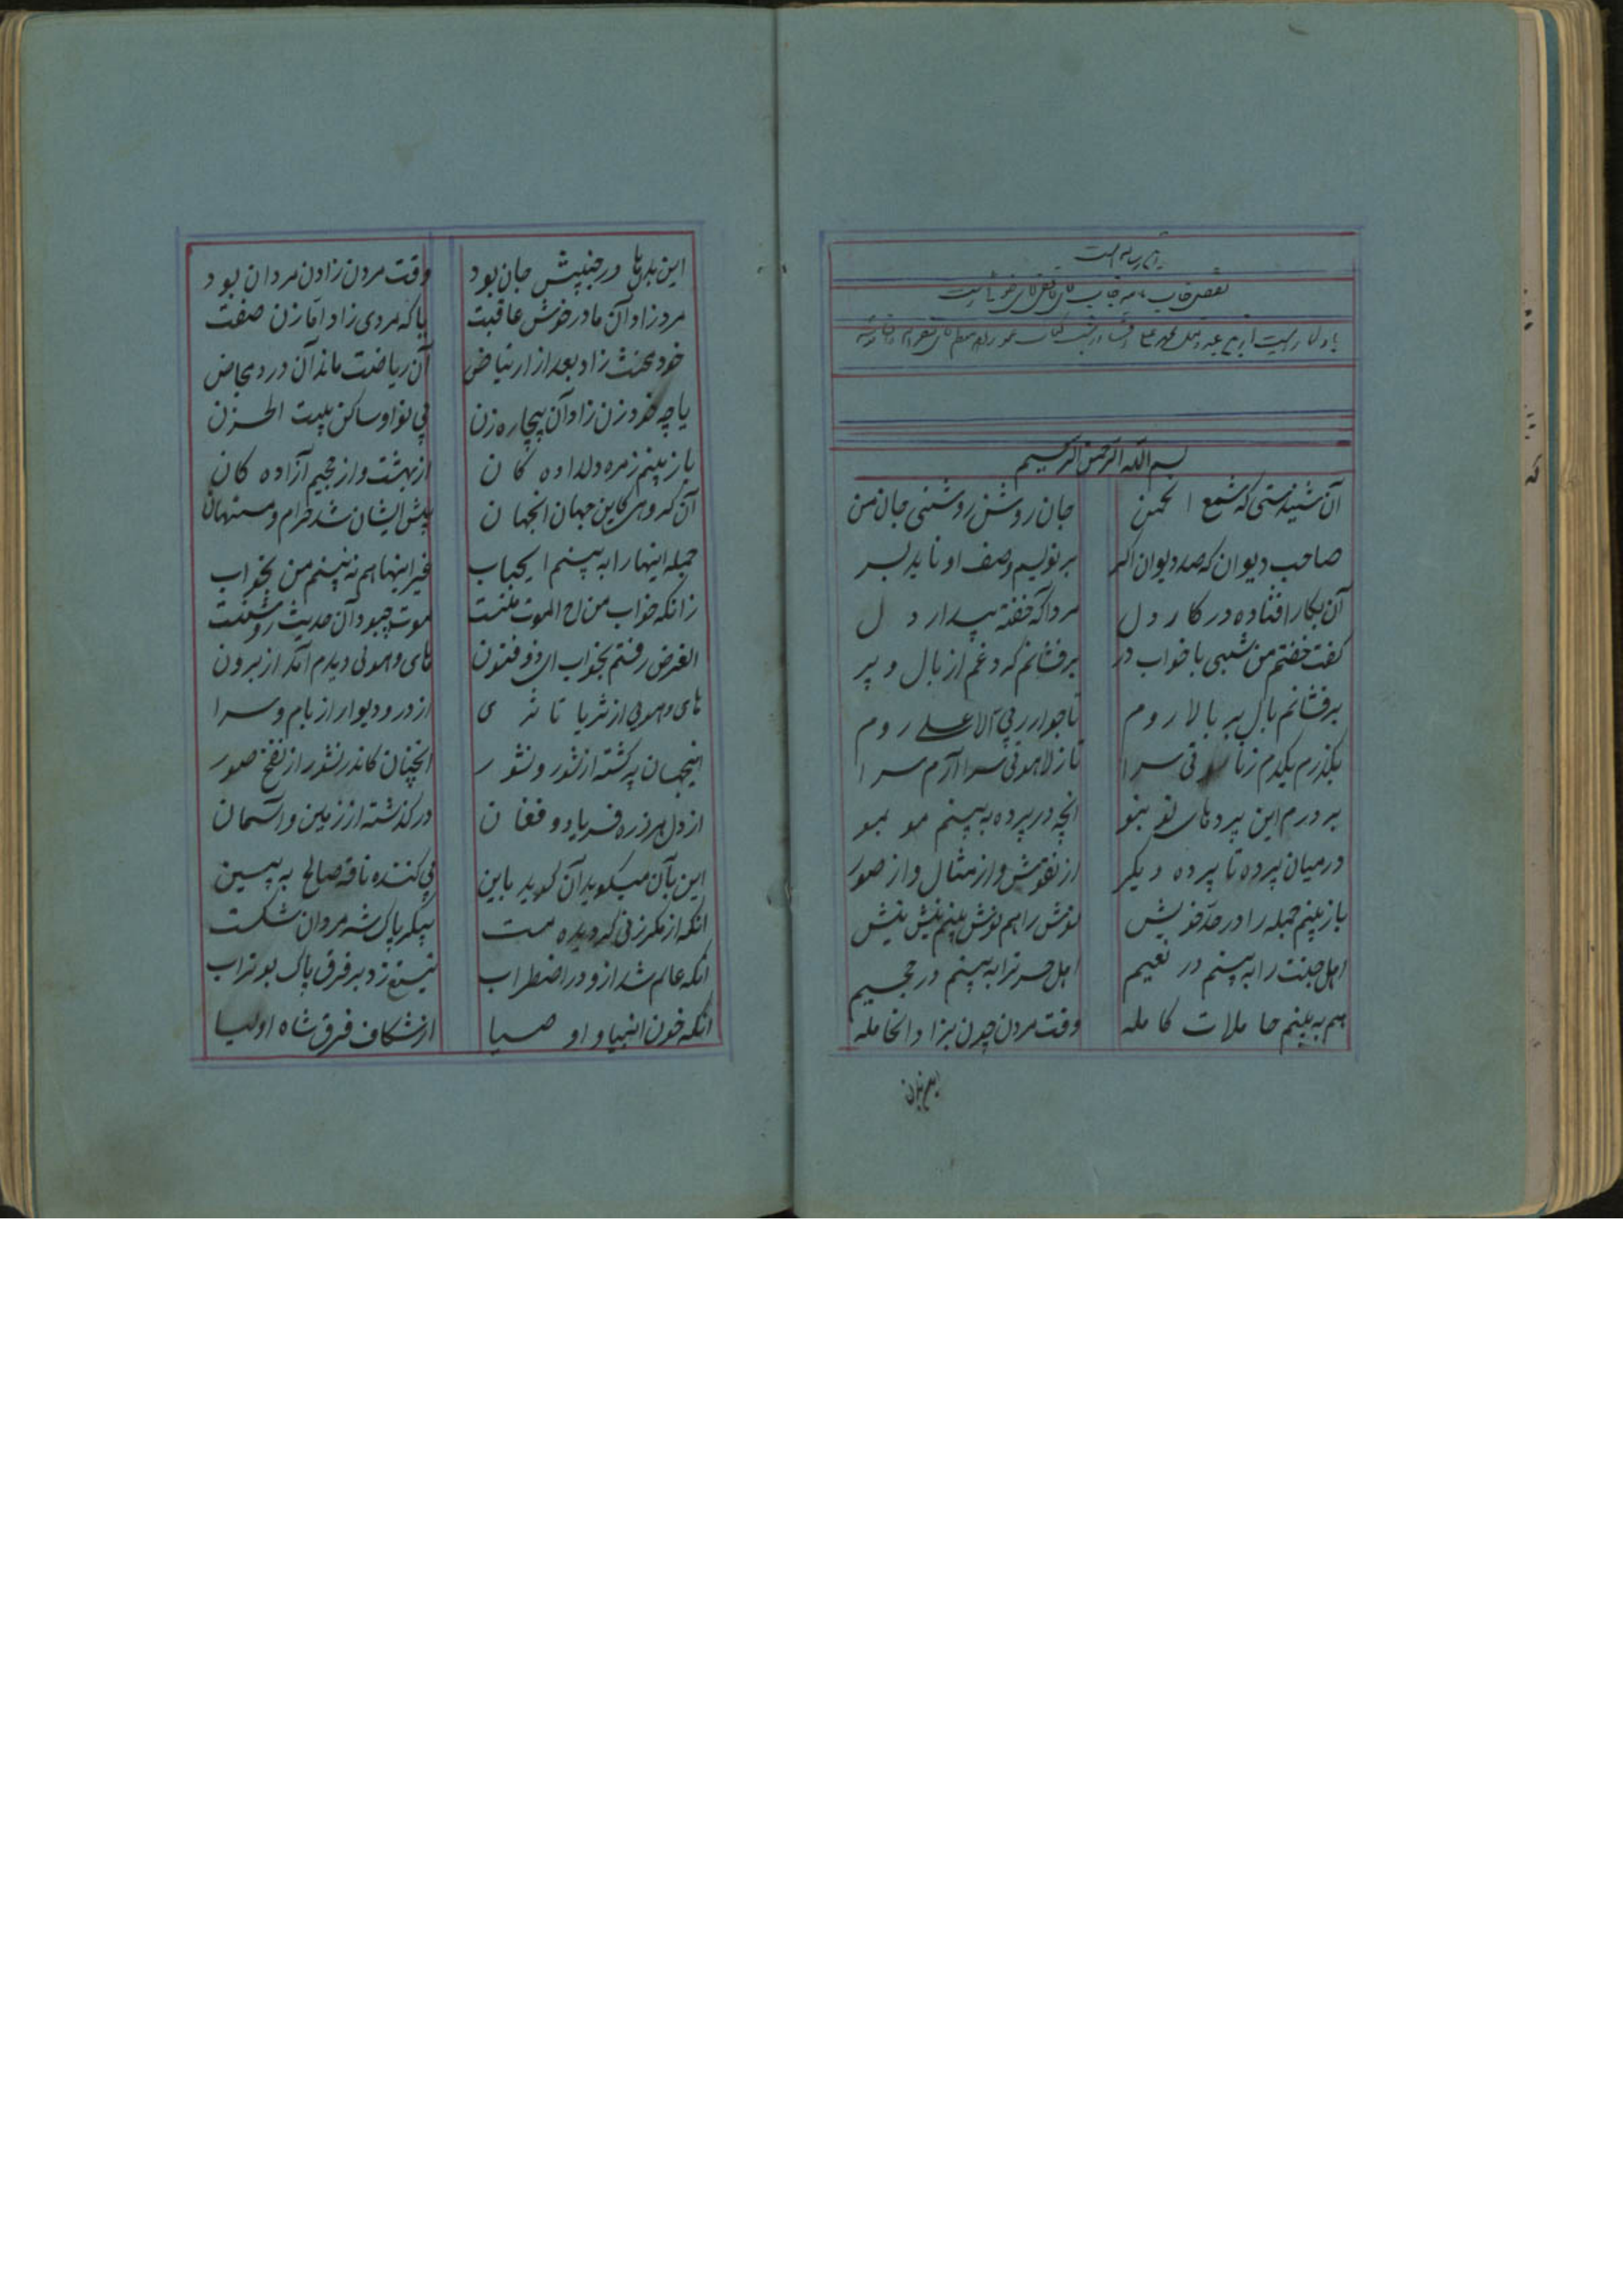 بسم الله الرحمن الرحیم
آن شنیدستی که شمع انجمن جان روشن روشنی جان من
صاحب دیوان که صد دیوان اگر بر نویسم وصف او ناید بسر
آن بکار افتاده در کار دل مرد اگه خفته بیدار دل
کفت خفتم من شبی با خواب در برفشانم کرد غم از بال و پر
برفشانم بال پر بالا روم تا جوار ربی الاعلی روم
بکذرم یکدم زناسوتی سرا تا زلاهوتی سرا آرم سرا
بر درم این پردهای تو بتو انچه در پرده به بینم مو بمو
در میان پرده تا پرده دیکر از نقوش و از مثال و از صور
باز بینم جمله را در حد خویش نوش را هم نوش بینم نیش نیش
اهل جنت را به بینم در نعیم اهل حسرترا به بینم در جحیم
هم به بینم حاملات کامله وقت مردن چون بزاد انحامله
این بدنها در جنبیش جان بود وقت مردن زادن مردان بود
مرد زاد آن مادر خوش عاقبت یا که مردی زاد اما زن صفت
خود مخنث زاد بعد از ارتیاض آن ریاضت ماند آن درد مخاض
یا چه خود زن زاد آن بیچاره زن بی نوا و ساکن بیت الحزن
باز بینم زمره دلداده کان از بهشت و از جحیم آزاده کان
آن کروهی کاین جهان انجهان پیش ایشان شد حرام و مستهان
جمله اینها را به بینم ایحباب غیر اینها هم نه بینم من بخواب
زانکه خواب من اخ الموت منست موت چبود آن حدیث روشنست
الغرض رفتم بخواب ای ذو فنون های و هوئی دیدم آمد از برون
های و هویی از ثریا تا ثری از در و دیوار از بام و سرا
اینجهان پر کشته از شور و نشور انچنان کاندر نشور از نفخ صور
از دل هر ذره فریاد و فغان در کذشته از زمین و آسمان
این بآن میکوید آن کوید باین پی کننده ناقه صالح به بین
انکه از مکر زنی کردیده مست پیکر پاک شه مردان شکست
انکه عالم شد ازو در اضطراب تیغ زد بر فرق پاک بو تراب
انکه خون انبیا و اوصیا از شکاف فرق شاه اولیا
این بدن